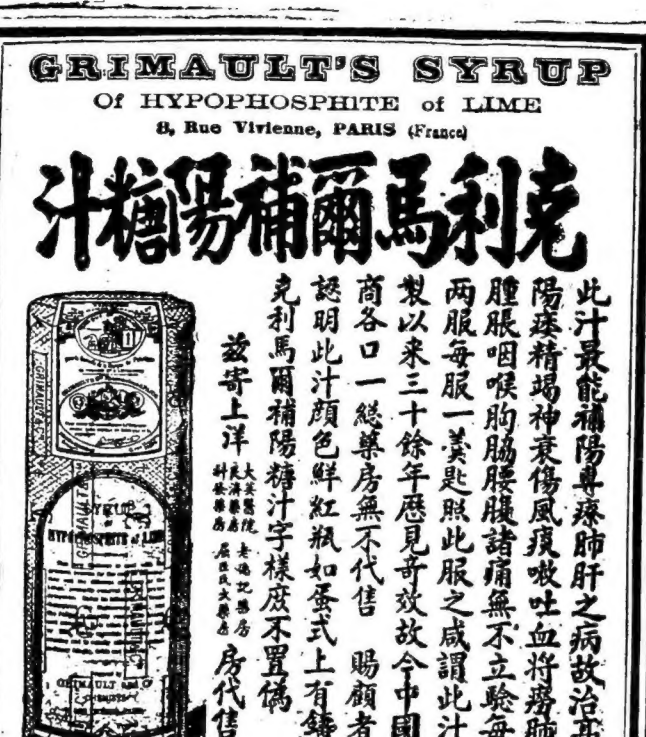 GRIMAULT'S SYRUP
Of HYPOPHOSPHITE of LIME
8, Rue Vivienne, PARIS (France)
克利馬爾補陽糖汁
此汁最能補陽專療肺肝之病故治
陽痿精竭神衰傷風痰嗽吐血將癆肺
腫脹咽喉胸脇腰腹諸痛無不立驗每
两服每服一羮匙照此服之咸謂此汁
製以来三十餘年歷見奇效故今中國
商各口一總藥房無不代售 賜顧者
認明此汁顔色鮮紅瓶如蛋式上有鑄
克利馬爾補陽糖汁字樣庶不置僞
茲寄上洋
大英醫院 老德記藥房
良濟藥房 屈臣氏大藥房
科發藥房
房代售
GRIMAULT
SYRUP
of
HYPOPHOSPHITE of LIME
GRIMAULT
GRIMAULT
GRIMAULT and C°